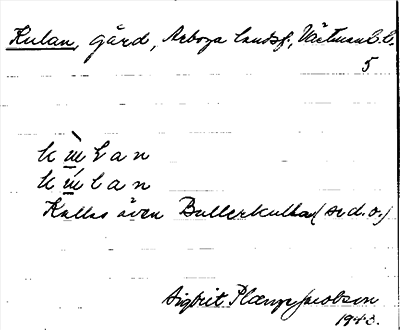 Kulan, gård, Arboga landsf., Västmanl. l.
5
kùlan
kúlan
Kallas även Bullerkullan (se d.o.)
Sigbrit Plænge Jacobson
1943.